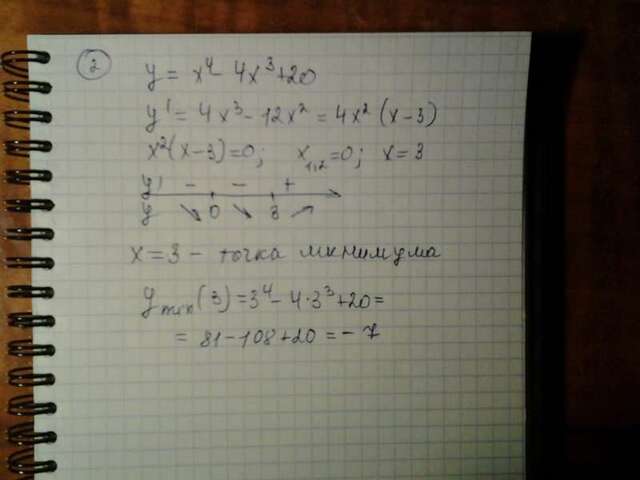 2
y = x⁴ - 4x³+20
y' = 4x³ - 12x² = 4x² (x-3)
x²(x-3)=0; x₁,₂=0; x=3
y' - - +
y ↘ 0 ↘ 3 ↗
x=3 - точка минимума
y min (3) = 3⁴ - 4·3³+20=
= 81-108+20 = -7